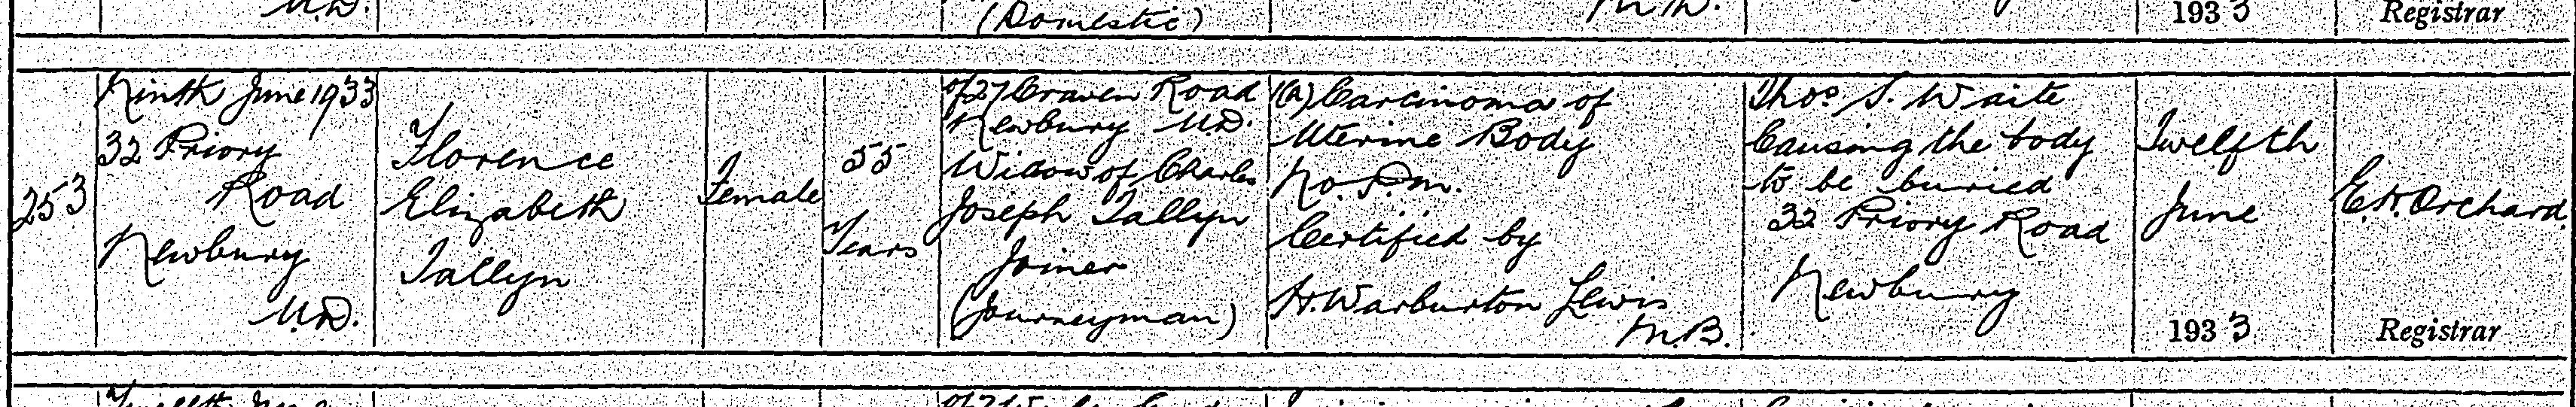 U.D.
(Domestic)
1933
Registrar
253
Ninth June 1933
32 Priory
Road
Newbury
U.D.
Florence
Elizabeth
Tallyn
Female
55
Years
of 27 Craven Road
Newbury U.D.
Widow of Charles
Joseph Tallyn
Joiner
(Journeyman)
1(a) Carcinoma of
Uterine Body
No. P.m.
Certified by
H. Warburton Lewis
M.B.
Thos S. Waite
Causing the body
to be buried
32 Priory Road
Newbury
Twelfth
June
1933
E.H. Orchard.
Registrar